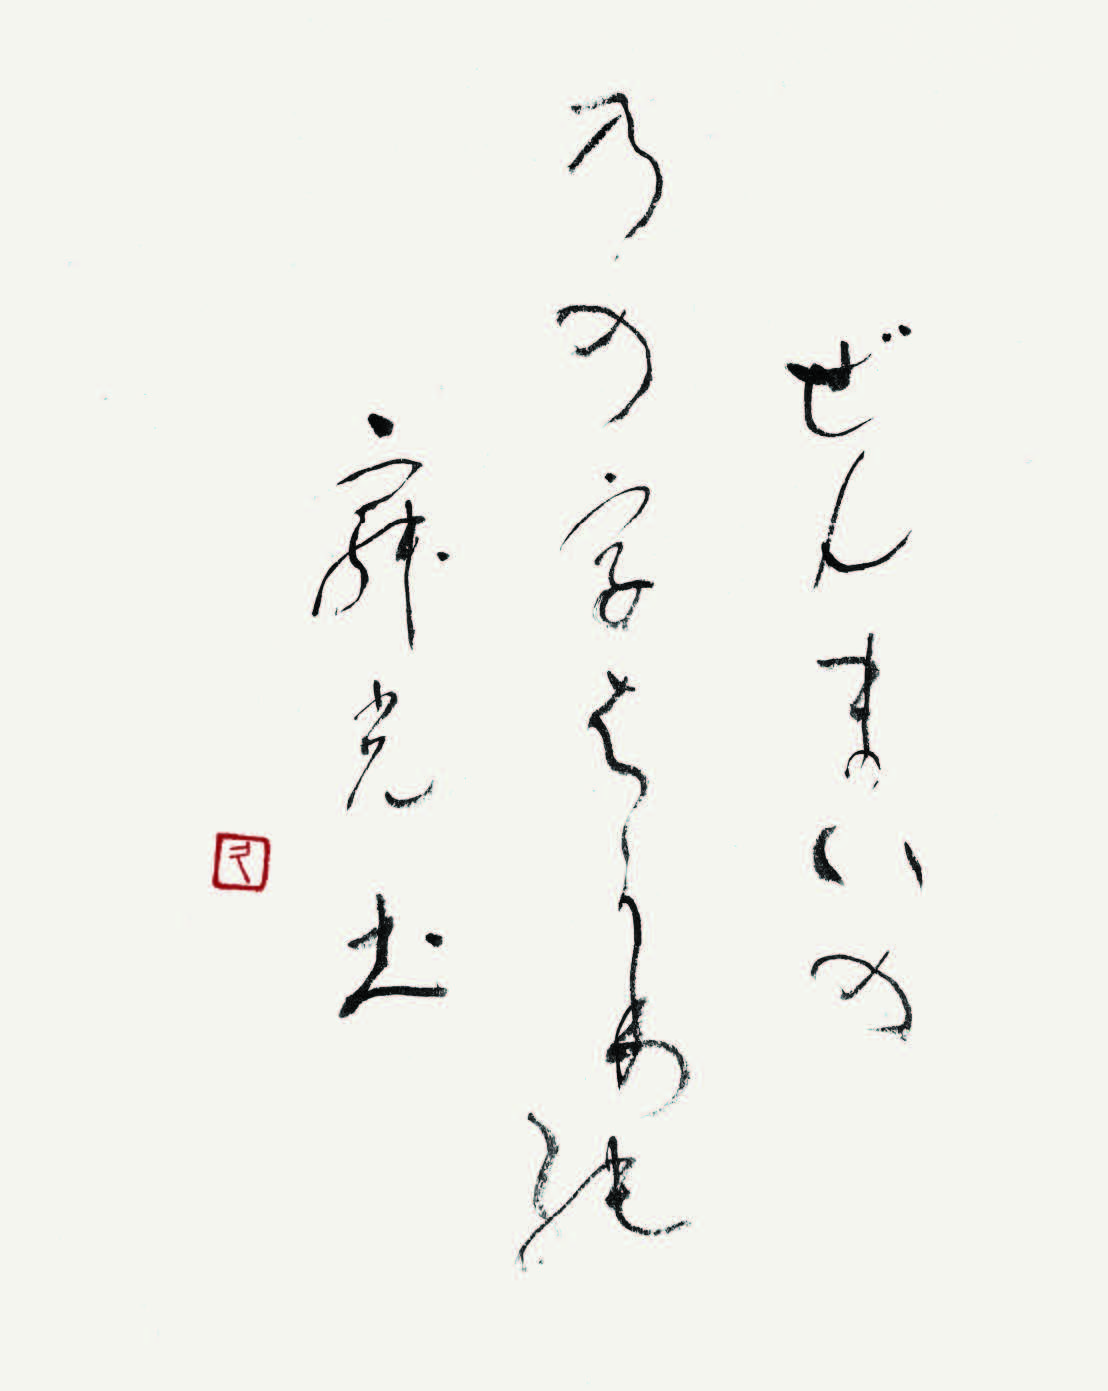 ぜんまいの
乃の字はかり能
寂光土